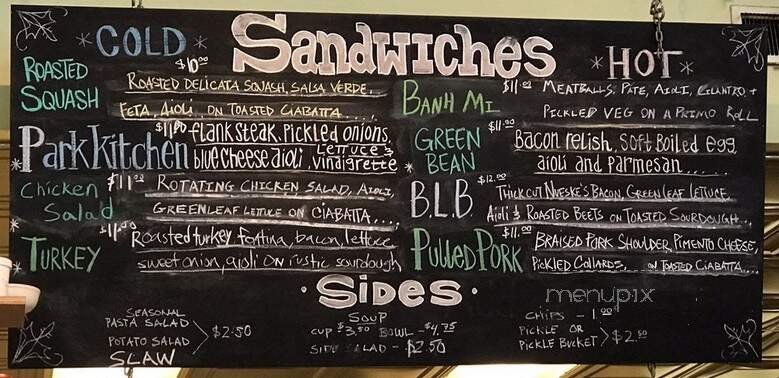 Sandwiches
* COLD *
ROASTED SQUASH $10.00
ROASTED DELICATA SQUASH, SALSA VERDE...
FETA, AIOLI, ON TOASTED CIABATTA....
* Park Kitchen $11.00
flank steak, pickled onions,
blue cheese aioli, LETTUCE & vinaigrette
* Chicken Salad $11.00
ROTATING CHICKEN SALAD, AIOLI,
GREENLEAF LETTUCE ON CIABATTA....
* TURKEY $11.00
Roasted turkey fontina, bacon, lettuce
sweet onion, aioli ON rustic sourdough
* HOT *
BANH MI $11.00
MEATBALLS, PATE, AIOLI, CILANTRO +
PICKLED VEG ON A PRIMO ROLL
* GREEN BEAN $11.00
Bacon relish, Soft Boiled egg,
aioli and parmesan.....
B.L.B. $12.00
THICK CUT NUESKE'S BACON, GREEN LEAF LETTUCE,
AIOLI & ROASTED BEETS ON TOASTED SOURDOUGH...
Pulled Pork $11.00
BRAISED PORK SHOULDER, PIMENTO CHEESE,
PICKLED COLLARDS, ON TOASTED CIABATTA....
· Sides ·
SEASONAL
PASTA SALAD
POTATO SALAD
SLAW
$2.50
SOUP
CUP $3.50 BOWL - $4.75
SIDE SALAD - $2.50
CHIPS - 1.00
PICKLE OR
PICKLE BUCKET
$2.50
menupix